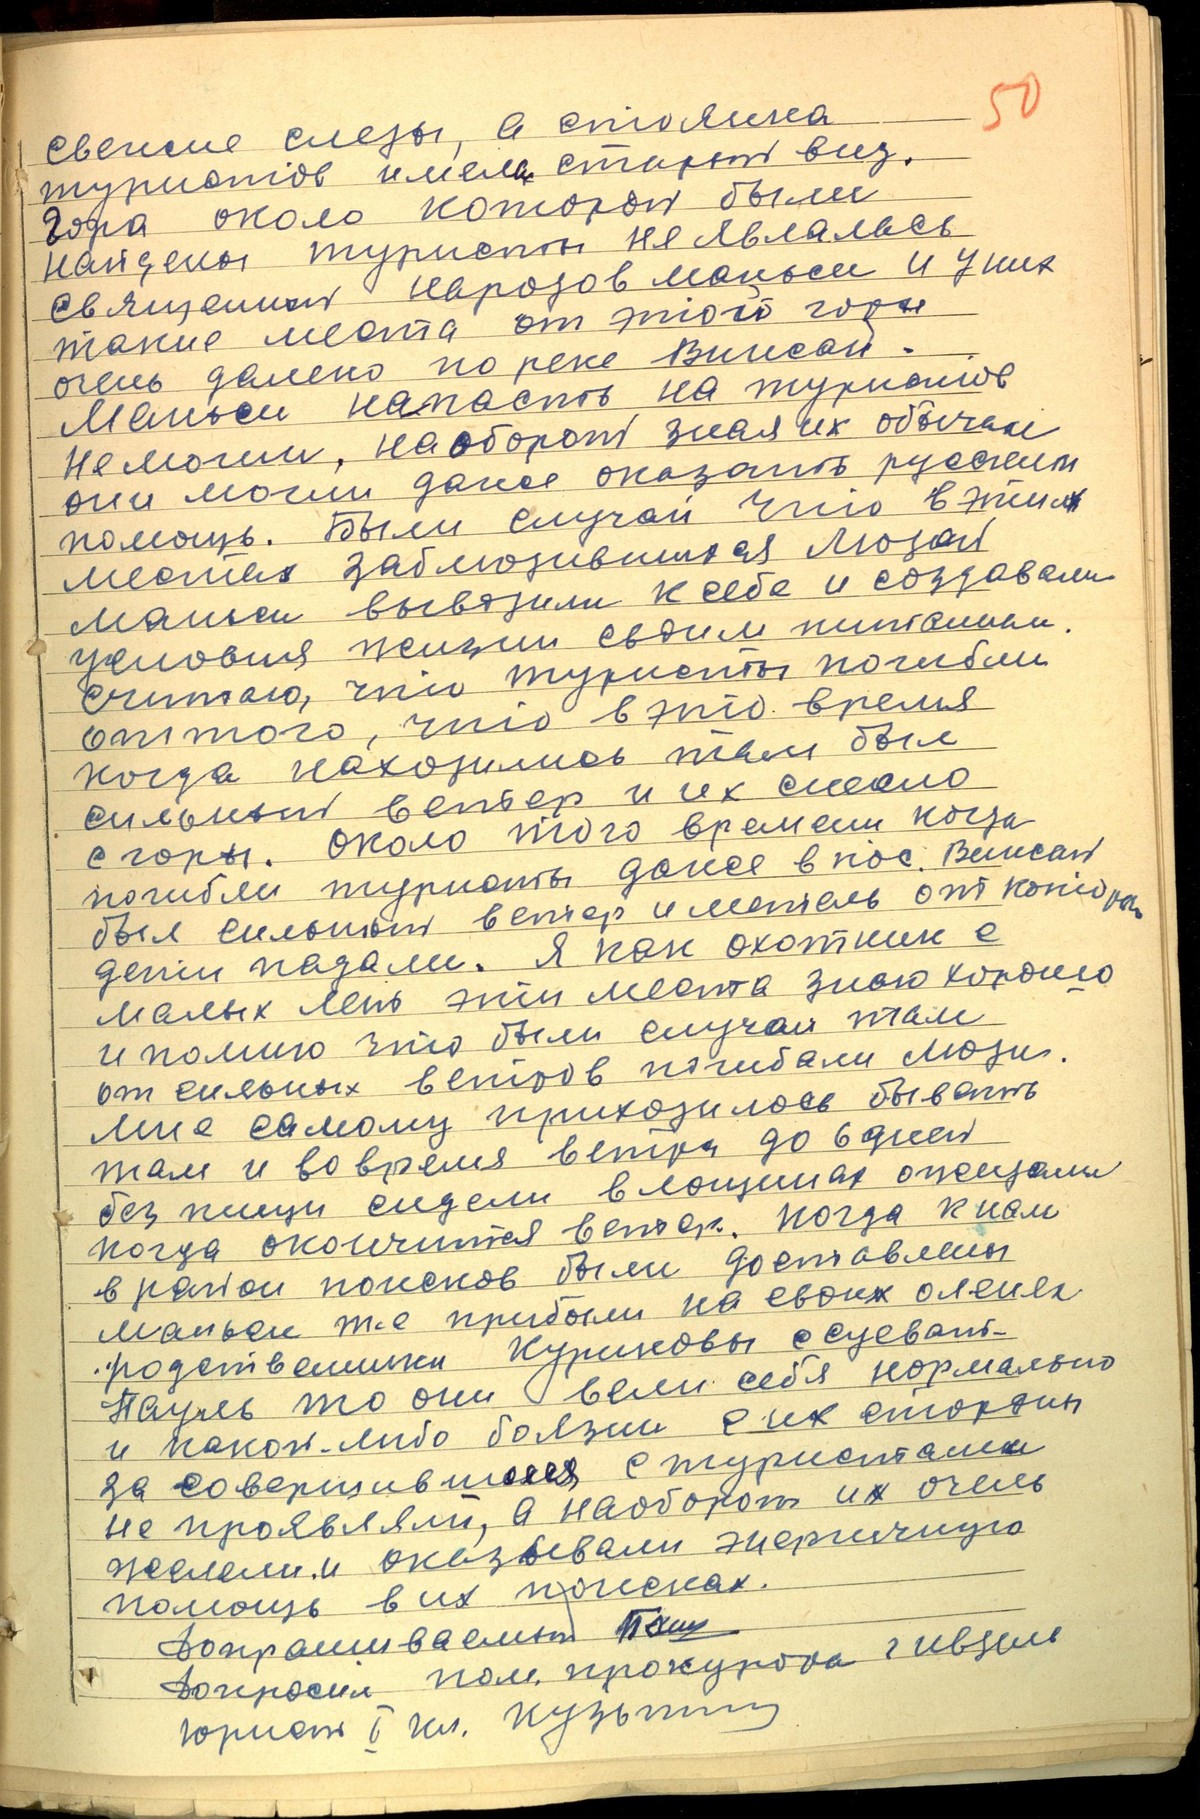 50
свежие следы, а стоянка
туристов имела старый вид.
Гора около которой были
найдены туристы не являлась
священной народов маньси и у них
такие места от этой горы
очень далеко по реке Вижай.
Маньси напасть на туристов
не могли, наоборот зная их обычаи
они могли даже оказать русским
помощь. Были случаи что в этих
местах заблюдившихся людей
маньси вывозили к себе и создавали
условия жизни своим питанием.
Считаю, что туристы погибли
от того, что в это время
когда находились там был
сильный ветер и их снесло
с горы. Около того времени когда
погибли туристы даже в пос. Вижай
был сильный ветер и метель от которых
дети падали. Я как охотник с
малых лет эти места знаю хорошо
и помню что были случаи там
от сильных ветров погибали люди.
Мне самому приходилось бывать
там и во время ветра до 6 дней
без пищи сидели в лощинах ожидали
когда окончится ветер. Когда к нам
в район поисков были доставлены
маньси т.е прибыли на своих оленях
родственники Куриковы с Суеват-
Пауль то они вели себя нормально
и какой-либо боязни с их стороны
за совершившееся с туристами
не проявляли, а наоборот их очень
жалели и оказывали энергичную
помощь в их поисках.
Допрашиваемый
Допросил пом. прокурора г Ивдель
юрист I кл. Кузьминых